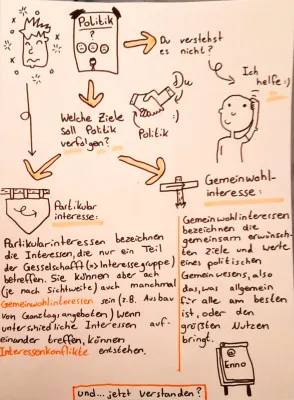 Politik
?
Du verstehst
es nicht?
Ich
helfe :)
Du
:)
Politik
Welche Ziele
soll Politik
verfolgen?
Partikular
interesse:
Gemeinwohl-
interesse:
Partikularinteressen bezeichnen
die Interessen, die nur ein Teil
der Gesellschafft (=> Interessegruppe)
betreffen. Sie können aber ach
(je nach Sichtweite) auch manchmal
Gemeinwohlinteressen sein (z.B. Ausbau
von Ganztagsangeboten) Wenn
unterschiedliche Interessen auf-
einander treffen, können
Interessenkonflikte entstehen.
Gemeinwohlinteressen
bezeichnen die
gemeinsam erwünsch-
ten Ziele und Werte
eines politischen
Gemeinwesens, also
das, was allgemein
für alle am besten
ist, oder den
größten Nutzen
bringt.
Enno
und... jetzt verstanden?